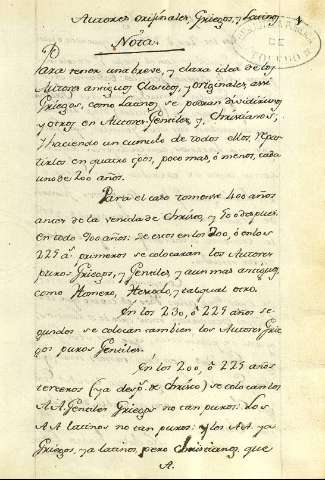 Autores originales Griegos, y Latinos
Nota.
Para tener una breve, y clara idea de los
Autores antiguos Clasicos, y originales, assi
Griegos, como Latinos, se podran dividir unos
y otros en Autores Gentiles, y Christianos,
y haciendo un cumulo de todos ellos, repar-
tirlos en quatro mas, ó menos, cada
uno de 200 años.
Para el caso tomense 400 años
antes de la venida de Christo, y 500 despues.
En todo 900 años: De estos en los 200, ó en los
225 a.s primeros se colocaran los Autores
puros Griegos, y Gentiles y aun mas antiguos,
como Homero, Hesiodo, y tal qual otro.
En los 230, ó 225 años se-
gundos se colocan tambien los Autores Grie-
gos puros Gentiles.
En los 200, ó 225 años
terceros (ya desp.s de Christo) se colocan los
AA Gentiles Griegos no tan puros: Los
AA latinos no tan puros: y los AA. ya
Griegos, ya latinos, pero Christianos, que
A.